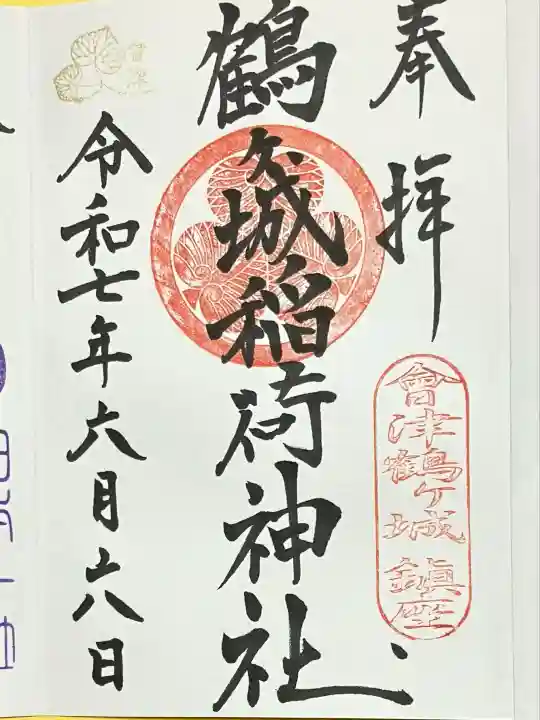 奉拝
會津鶴ケ城鎮座
鶴ヶ城稲荷神社
令和七年六月六日
會津